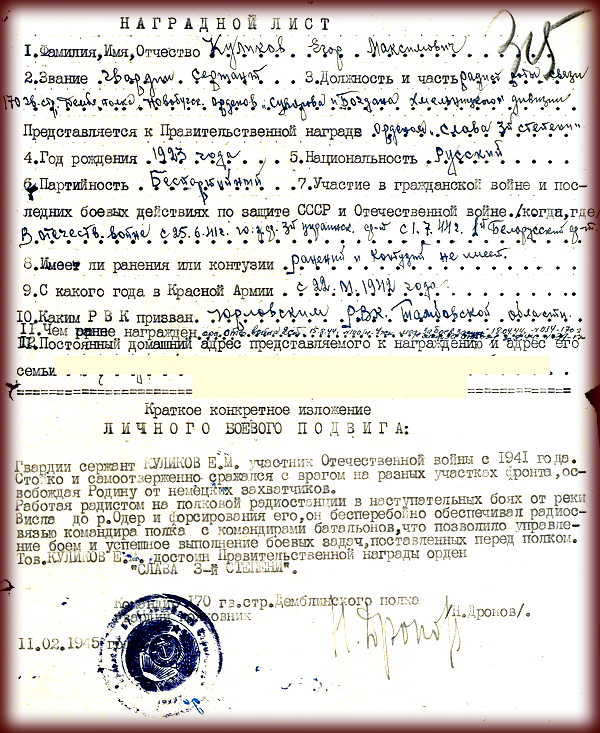 НАГРАДНОЙ ЛИСТ
315
1.Фамилия,Имя,Отчество Куликов Егор Максимович
2.Звание гвардии сержант 3.Должность и часть радист роты связи
170 гв. стр. полка Новобугск. орденов "Суворова и Богдана Хмельницкого" дивизии
Представляется к Правительственной награде Орденом "Слава 3й степени"
4.Год рождения 1923 года 5.Национальность Русский
6.Партийность Беспартийный 7.Участие в гражданской войне и пос-
ледних боевых действиях по защите СССР и Отечественной войне./когда,где/
В отечеств. войне с 25.6.41г. 3й украинск. ф-т с 1.7.44г. 1й Белорусский ф-т.
8.Имеет ли ранения или контузии ранений и контузий не имеет.
9.С какого года в Красной Армии с 22.VI.1942 года
10.Каким Р В К призван. Юрловским РВК Тамбовской области.
11.Чем ранее награжден
12.Постоянный домашний адрес представляемого к награждению и адрес его
семьи
Краткое конкретное изложение
ЛИЧНОГО БОЕВОГО ПОДВИГА:
Гвардии сержант КУЛИКОВ Е.М. участник Отечественной войны с 1941 года.
Стойко и самоотверженно сражался с врагом на разных участках фронта,ос-
вобождая Родину от немецких захватчиков.
Работая радистом на полковой радиостанции в наступательных боях от реки
Висла до р.Одер и форсирования его,он бесперебойно обеспечивал радиос-
вязью командира полка с командирами батальонов,что позволило управле-
ние боем и успешное выполнение боевых задач,поставленных перед полком.
Тов.КУЛИКОВ Е.М. достоин Правительственной награды орден
"СЛАВА 3-й СТЕПЕНИ".
Командир 170 гв.стр.Демблинского полка
гвардии полковник /Н.Дронов/.
Н.Дронов
11.02.1945 г